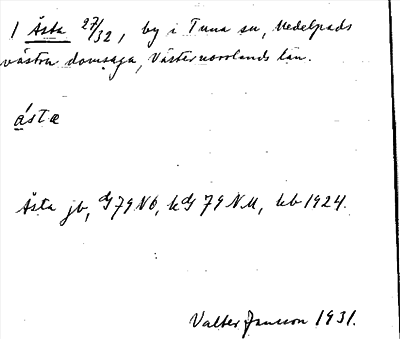 1 Åsta 27/32, by i Tuna sn, Medelpads
västra domsaga, Västernorrlands län.
ástæ
Åsta jb, G79Nb, kG79NM, kb 1924.
Valter Jansson 1931.